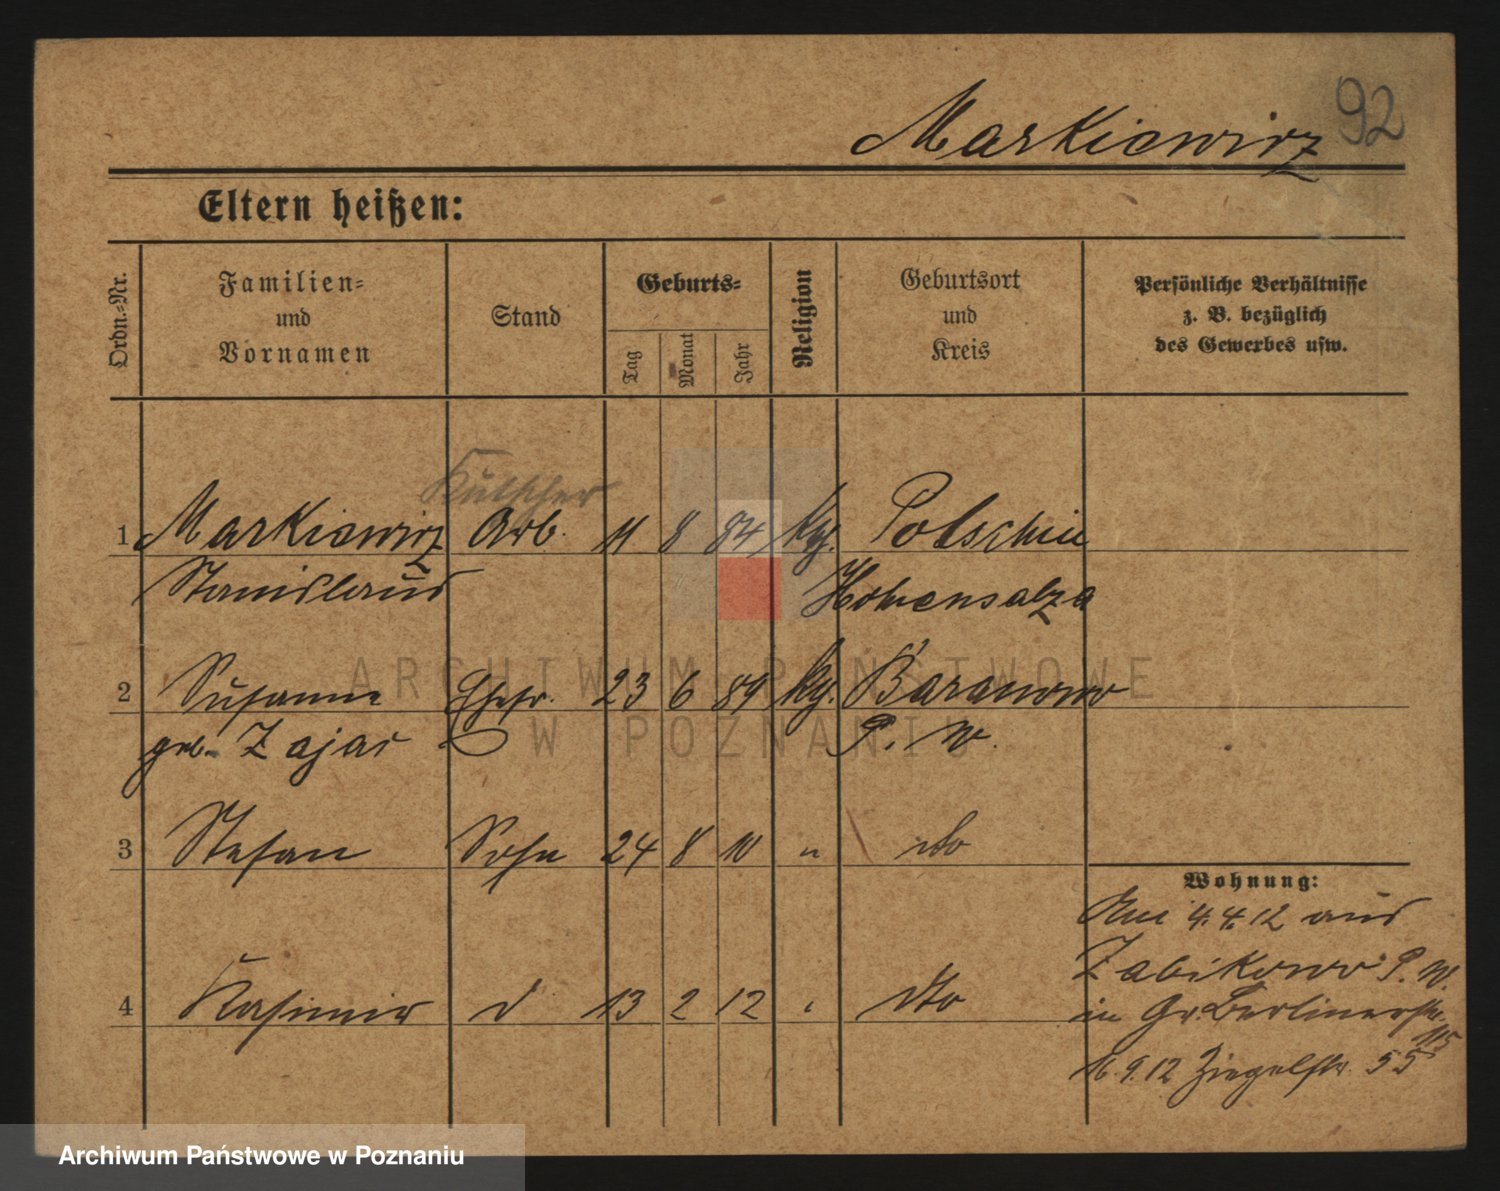 92
Markiewicz
Eltern heißen:
Ordn.-Nr.
Familien-
und
Vornamen
Stand
Geburts-
Tag
Monat
Jahr
Religion
Geburtsort
und
Kreis
Persönliche Verhältnisse
z. B. bezüglich
des Gewerbes usw.
Kutscher
1 Markiewicz Arb. 11 8 84 kg. Potschin
Stanislaus Hohensalza
2 Susanne Ehefr. 23 6 89 kg. Baranowo
geb. Zajac P. W.
3 Stefan Sohn 24 8 10 " dto
4 Kasimir d 13 2 12 " dto
Wohnung:
Am 4.4.12 aus
Zabikowo P. W.
in Gr. Berlinerstr.
115
16.9.12 Ziegelstr. 55
ARCHIWUM PAŃSTWOWE
W POZNANIU
Archiwum Państwowe w Poznaniu